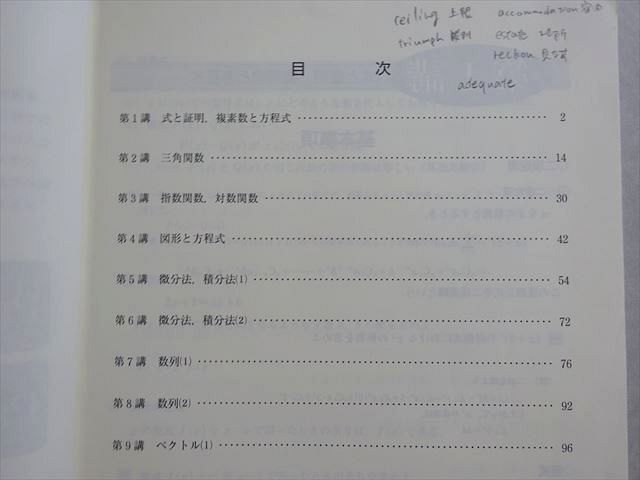 ceiling 上限 accommodation
triumph 勝利 estate 地所
reckon
adequate
目 次
第1講 式と証明,複素数と方程式 2
第2講 三角関数 14
第3講 指数関数,対数関数 30
第4講 図形と方程式 42
第5講 微分法,積分法(1) 54
第6講 微分法,積分法(2) 72
第7講 数列(1) 76
第8講 数列(2) 92
第9講 ベクトル(1) 96